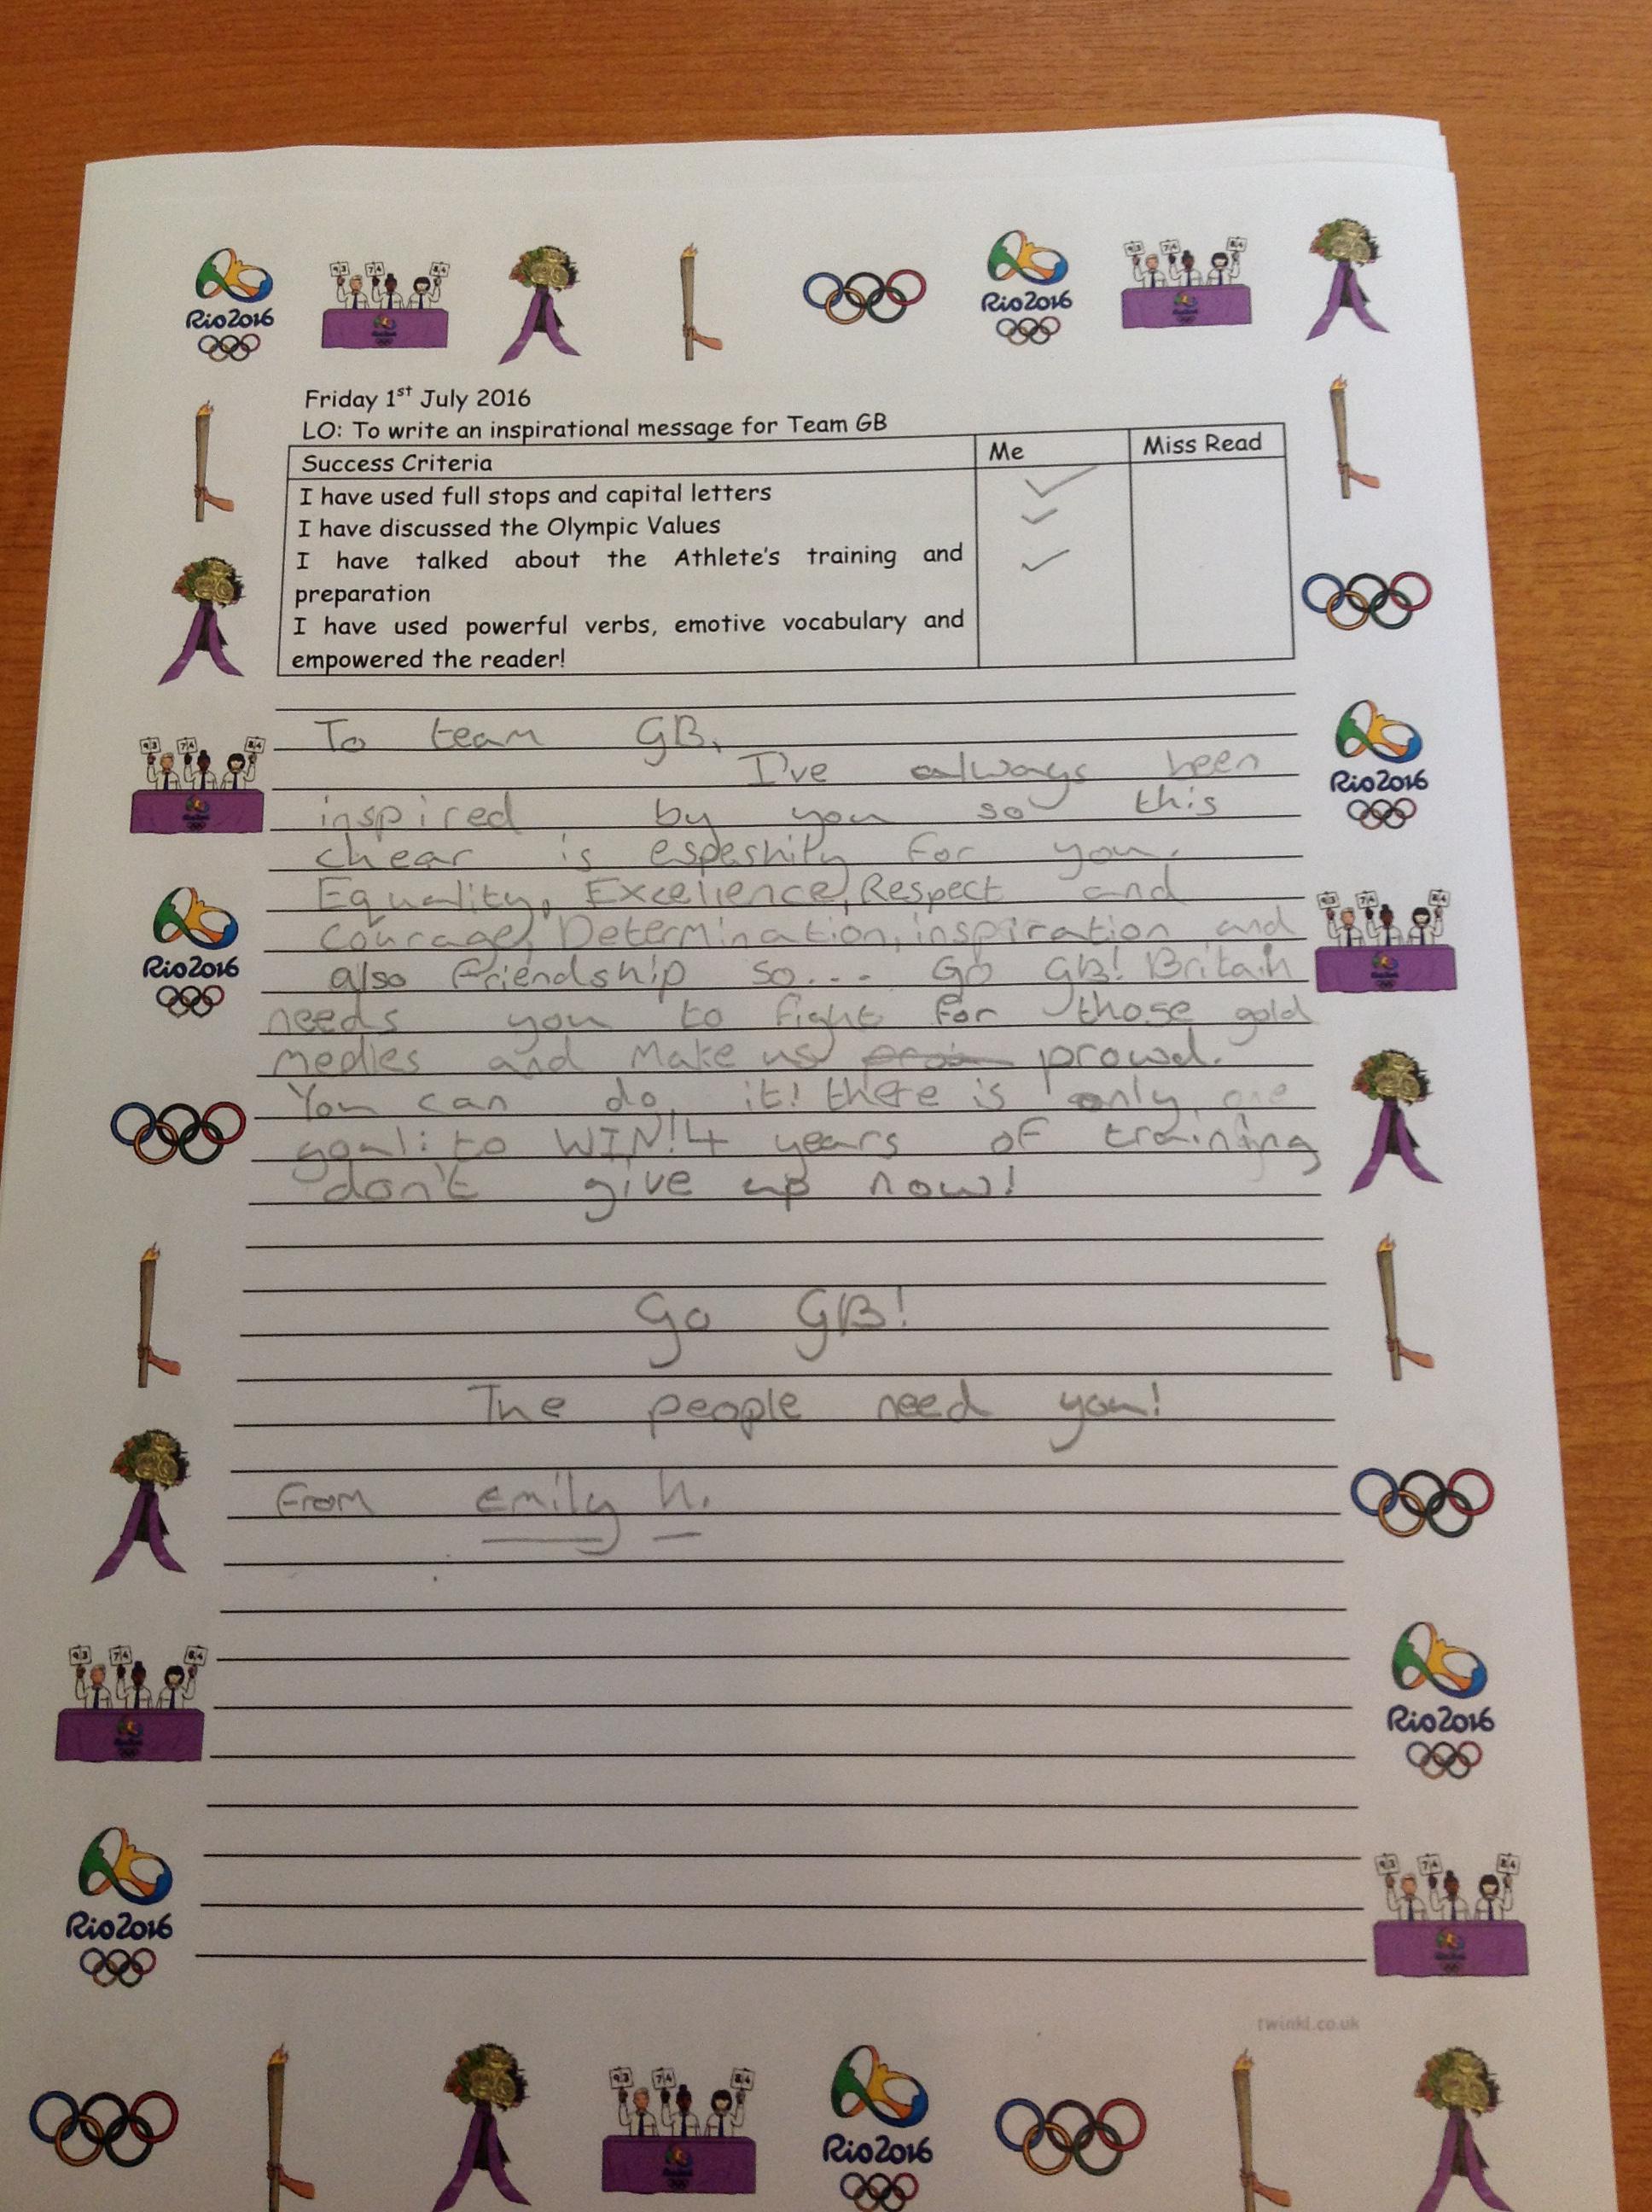 Rio2016
Rio2016
Friday 1st July 2016
LO: To write an inspirational message for Team GB
Success Criteria Me Miss Read
I have used full stops and capital letters
I have discussed the Olympic Values
I have talked about the Athlete's training and
preparation
I have used powerful verbs, emotive vocabulary and
empowered the reader!
To team GB,
I've always been
inspired by you so this
chear is espeshily for you.
Rio2016
Equality, Excellence, Respect and
Courage, Determination, inspiration and
Rio2016
also friendship so... Go GB! Britain
needs you to fight for those gold
medles and make us prowd.
You can do it! there is only one
goal: to WIN! 4 years of training
don't give up now!
Go GB!
The people need you!
From emily h.
Rio2016
Rio2016
twinkl.co.uk
Rio2016